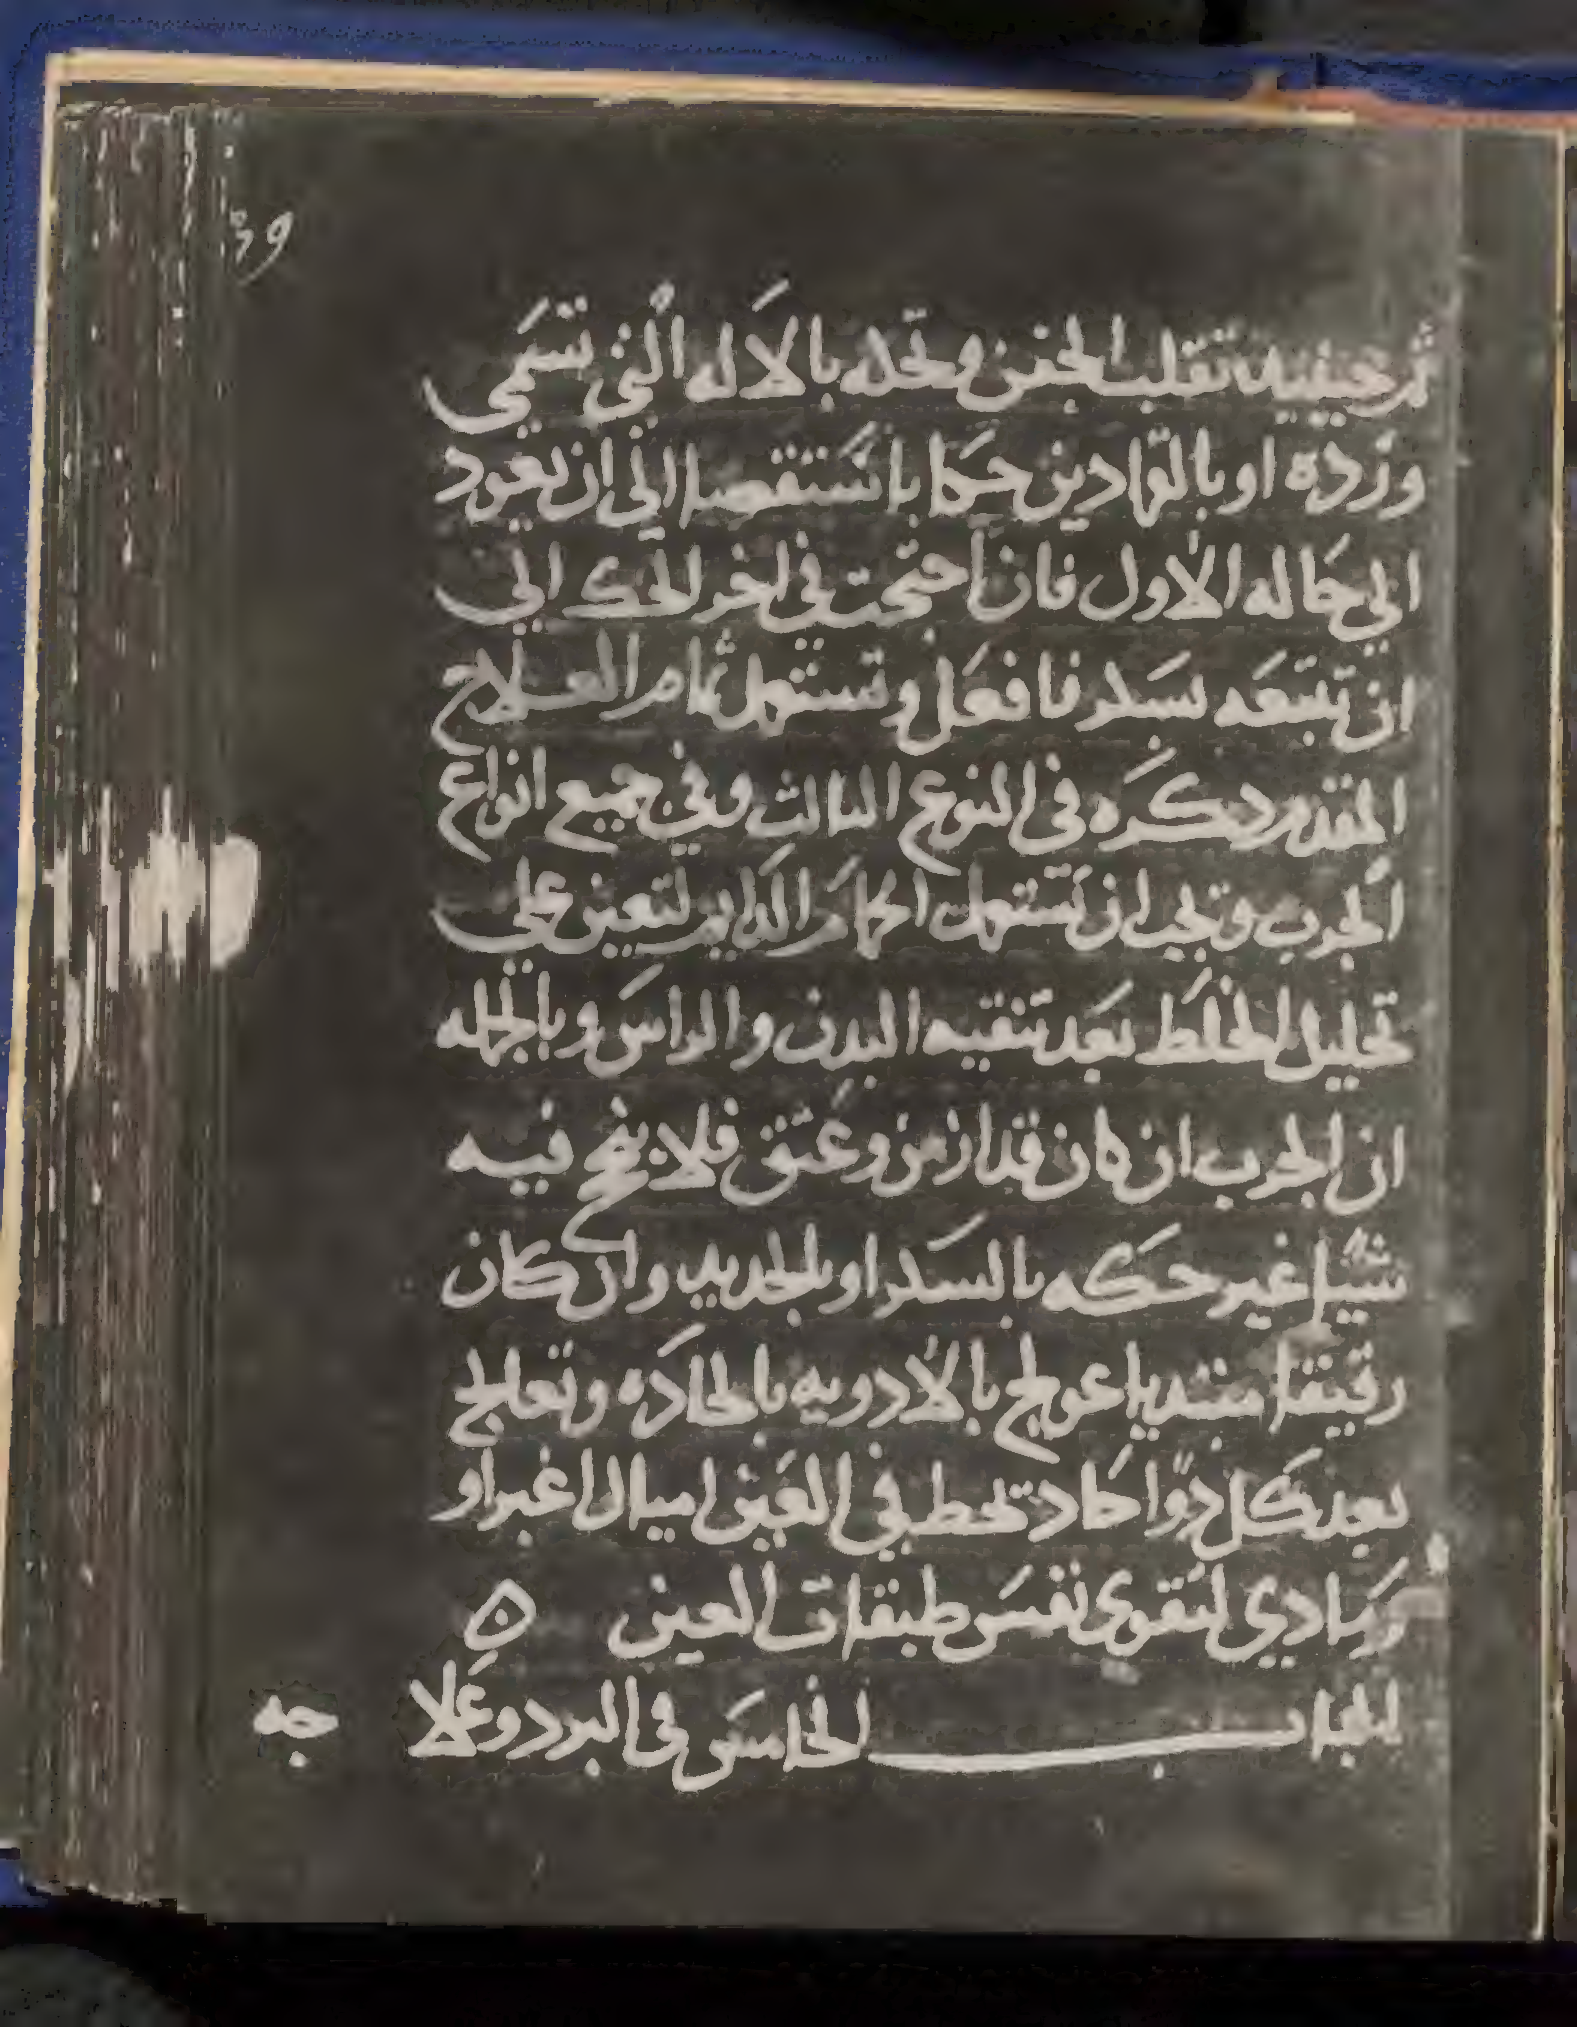 ثم حينيد تقلب الجفن وتحكه بالاله التي تسمى
ورده او بالقمادين حكا باستقصا الى ان يعود
الي حاله الاول فان احتجت في اخر الحك الي
ان تتبعه بسكر فافعل وتستعمل تمام العلاج
المقدم دكره في النوع الثالث وفي جميع انواع
الجرب وتحب ان تستعمل الحمام الدايم لتعين علي
تحليل الخلط بعد تنقيه البدن والراس وبالجمله
ان الجرب ان كان قد ازمن وعتق فلا ينجح فيه
شيا غير حكه بالسكر او بالحديد وان كان
رقيقا مبتديا عولج بالادويه بالحاده وتعالج
بعد كل دوا حاد تحط في العين اميال اغبر او
رمادي لتقوي نفس طبقات العين ٥
الباب الخامس في البرد وعلا
جه